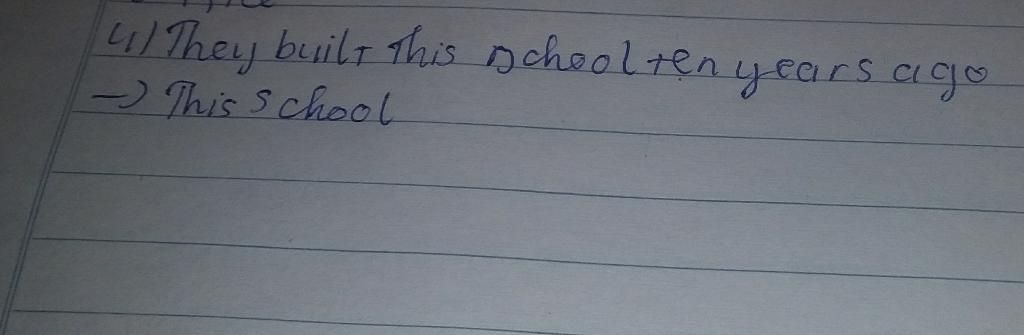 4) They built This school ten years ago
→ This school